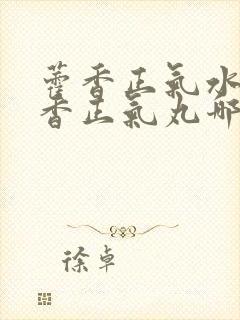 藿香正氣水
香正氣丸哪
徐卓